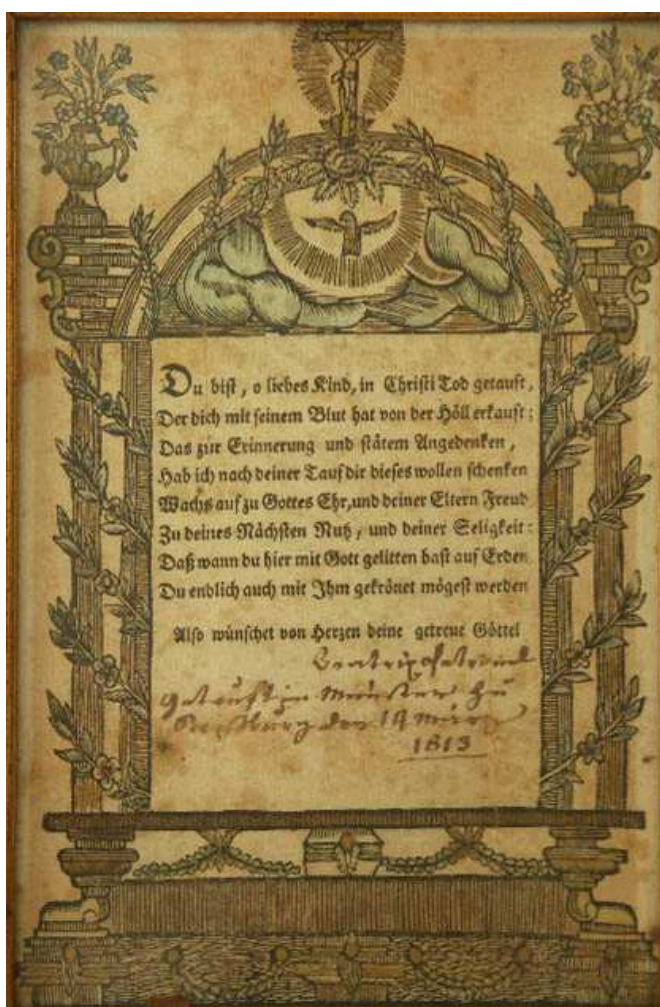 Du bist, o liebes Kind, in Christi Tod getauft,
Der dich mit seinem Blut hat von der Höll erkauft:
Das zur Erinnerung und stätem Angedenken,
Hab ich nach deiner Tauf dir dieses wollen schenken
Wachs auf zu Gottes Ehr, und deiner Eltern Freud
Zu deines Nächsten Nutz, und deiner Seligkeit:
Daß wann du hier mit Gott gelitten hast auf Erden
Du endlich auch mit Ihm gekrönet mögest werden
Also wünschet von Herzen deine getreue Göttel
getauft im Münster zu
Straßburg den März
1813